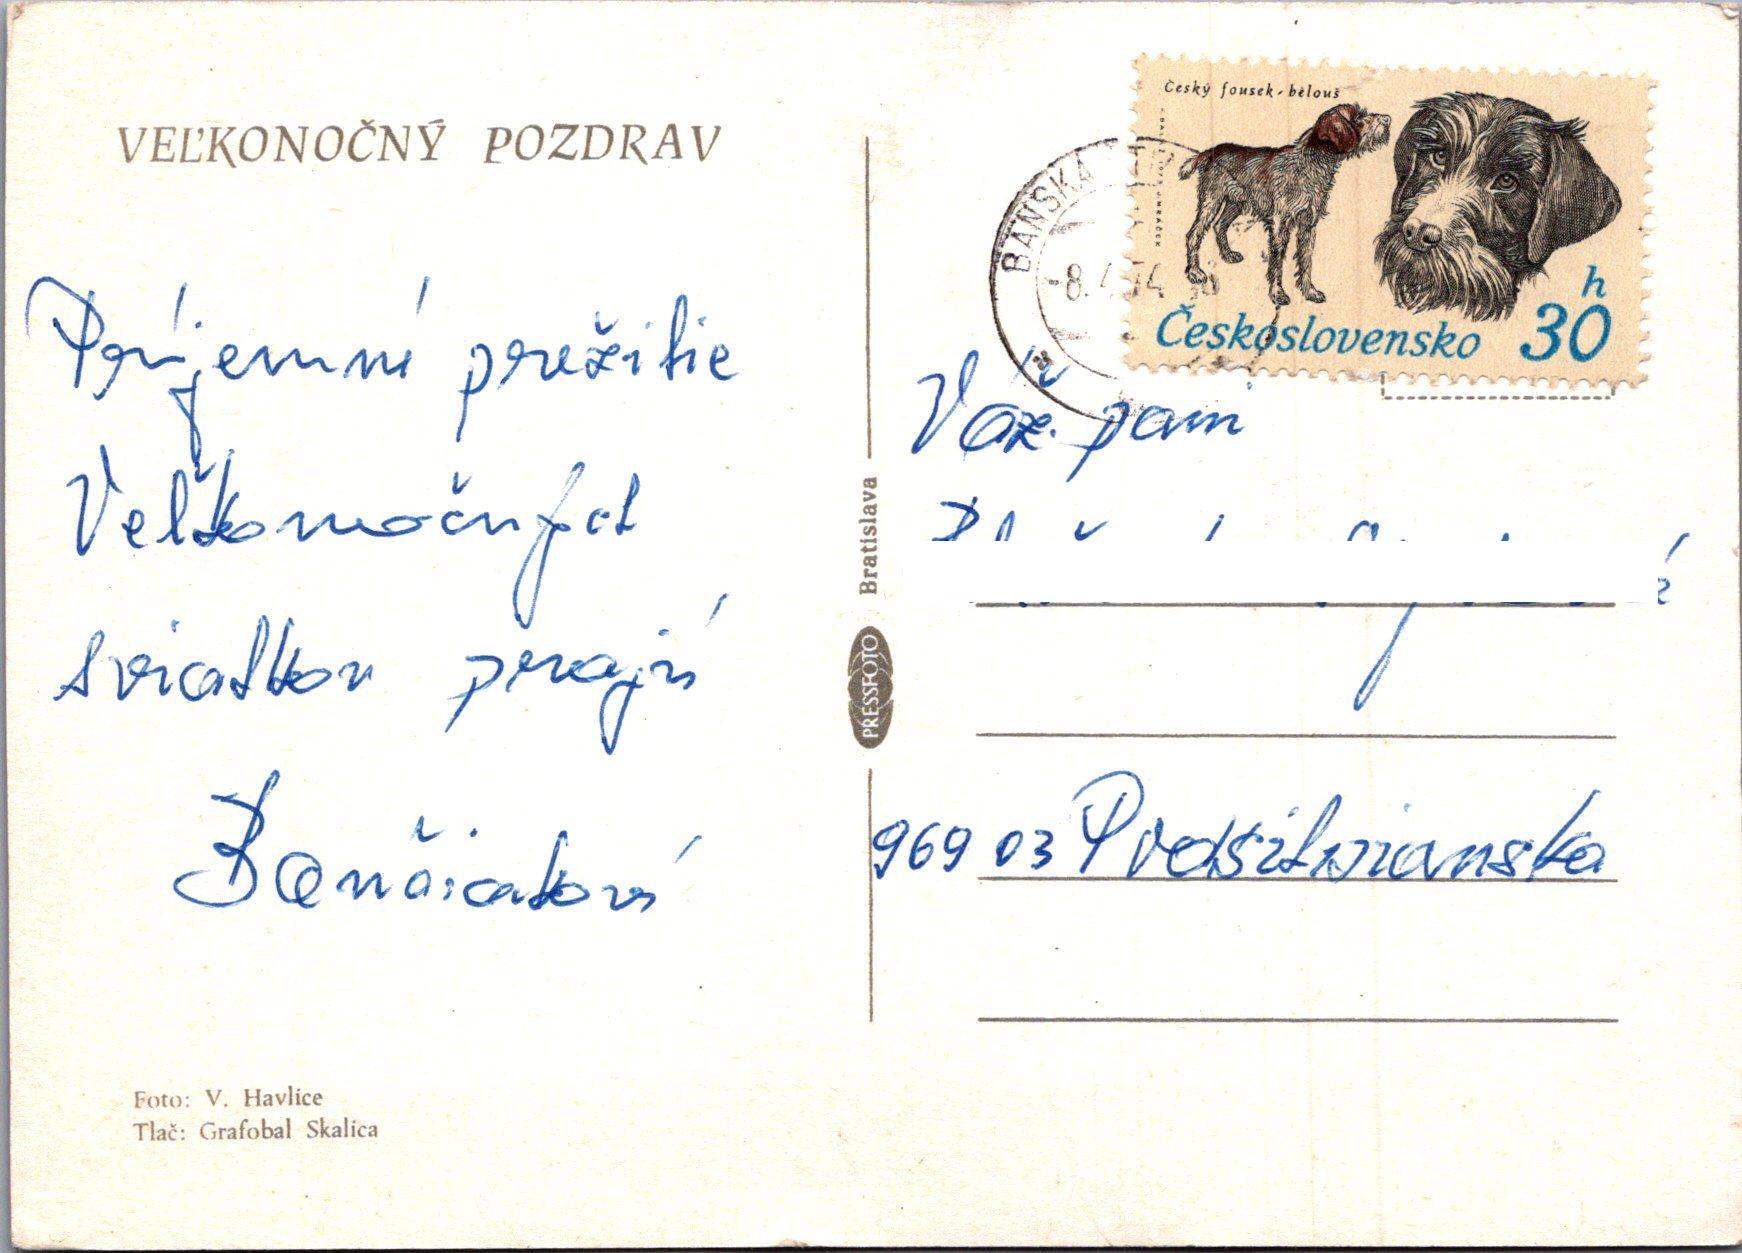 VEĽKONOČNÝ POZDRAV
Príjemné prežitie
Veľkonočných
sviatkov prajú
Bančiakoví
Foto: V. Havlice
Tlač: Grafobal Skalica
PRESSFOTO Bratislava
Český fousek - bělouš
J. MRÁČEK
Československo 30 h
BANSKÁ
-8. 4. 74
Váž. pani
969 03 Podsitnianska